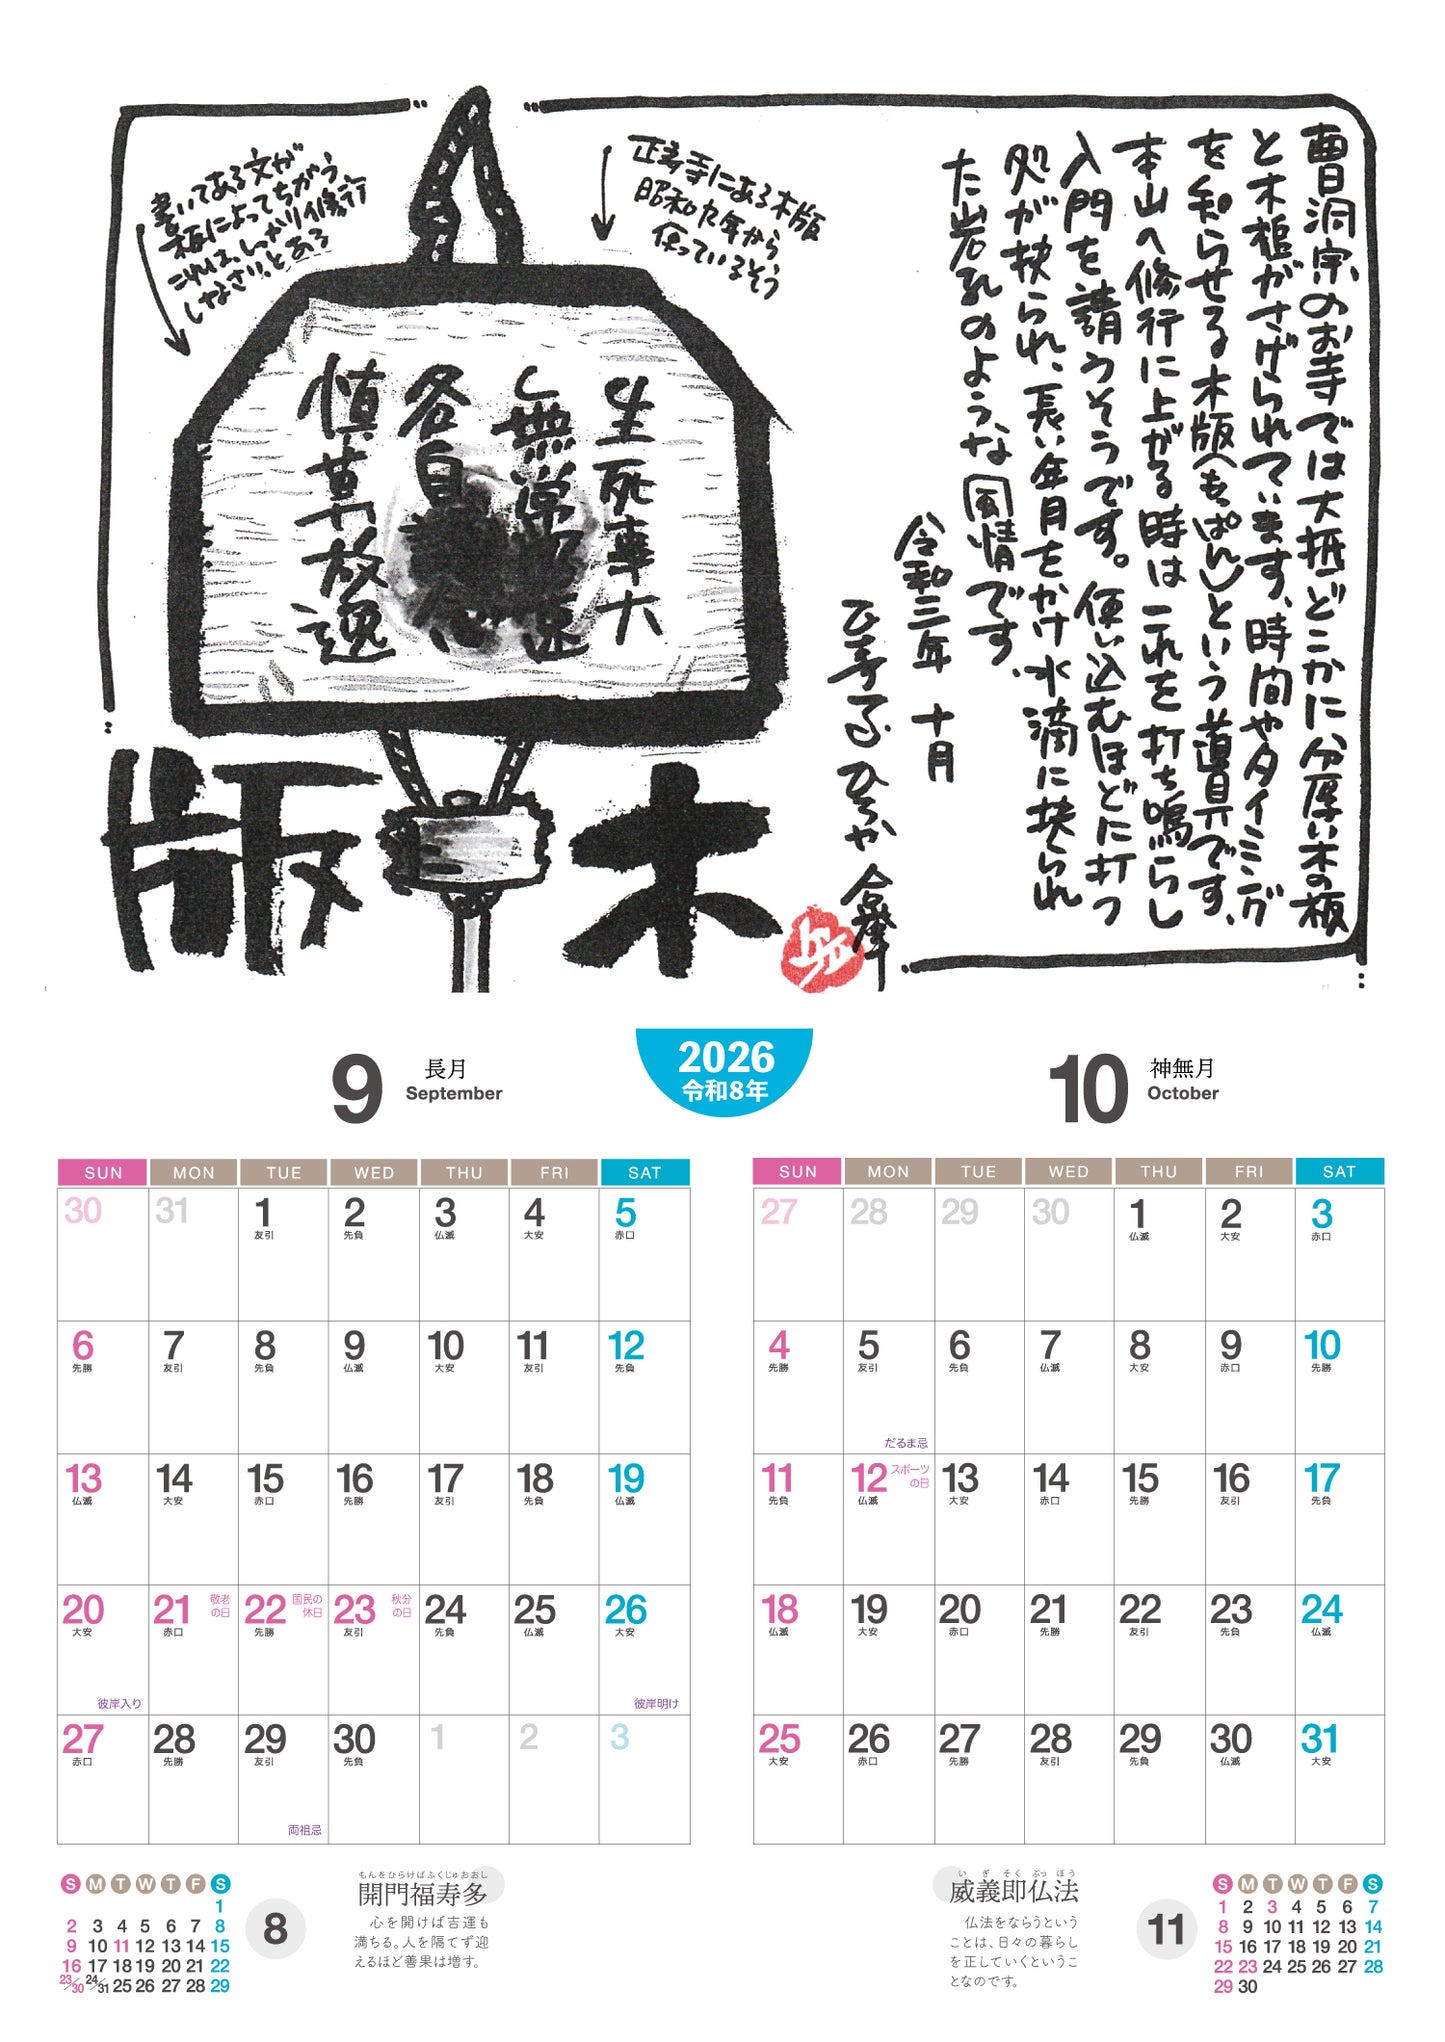 曹洞宗のお寺では大抵どこかに分厚い木の板
と木槌がさげられています、時間やタイミング
を知らせる木版(もっぱん)という道具です、
本山へ修行に上がる時はこれを打ち鳴らし
入門を請うそうです。使い込むほどに打つ
処が抉られ、長い年月をかけ水滴に抉られ
た岩孔のような風情です、
令和三年 十月
ひろか 合掌
正寿寺にある木版
昭和九年から
使っているそう
書いてある文が
板によってちがう、
コレは、しっかり修行
しなさい、とある
生死事大
無常迅速
各自
慎勿放逸
木版
2026
令和8年
9
長月
September
SUN MON TUE WED THU FRI SAT
30 31 1 2 3 4 5
友引 先負 仏滅 大安 赤口
6 7 8 9 10 11 12
先勝 友引 先負 仏滅 大安 友引 先負
13 14 15 16 17 18 19
仏滅 大安 赤口 先勝 友引 先負 仏滅
20 21 敬老の日 22 国民の休日 23 秋分の日 24 25 26
大安 赤口 先勝 友引 先負 仏滅 大安
彼岸入り 彼岸明け
27 28 29 30 1 2 3
赤口 先勝 友引 先負
両祖忌
10
神無月
October
SUN MON TUE WED THU FRI SAT
27 28 29 30 1 2 3
仏滅 大安 赤口
4 5 6 7 8 9 10
先勝 友引 先負 仏滅 大安 赤口 先勝
だるま忌
11 12 スポーツの日 13 14 15 16 17
先負 仏滅 大安 赤口 先勝 友引 先負
18 19 20 21 22 23 24
仏滅 大安 赤口 先勝 友引 先負 仏滅
25 26 27 28 29 30 31
大安 赤口 先勝 友引 先負 仏滅 大安
S M T W T F S
1
2 3 4 5 6 7 8
9 10 11 12 13 14 15
16 17 18 19 20 21 22
23/30 24/31 25 26 27 28 29
8
もんをひらけばふくじゅおおし
開門福寿多
心を開けば吉運も
満ちる。人を隔てず迎
えるほど善果は増す。
いぎそくぶっぽう
威義即仏法
仏法をならうという
ことは、日々の暮らし
を正していくというこ
となのです。
11
S M T W T F S
1 2 3 4 5 6 7
8 9 10 11 12 13 14
15 16 17 18 19 20 21
22 23 24 25 26 27 28
29 30